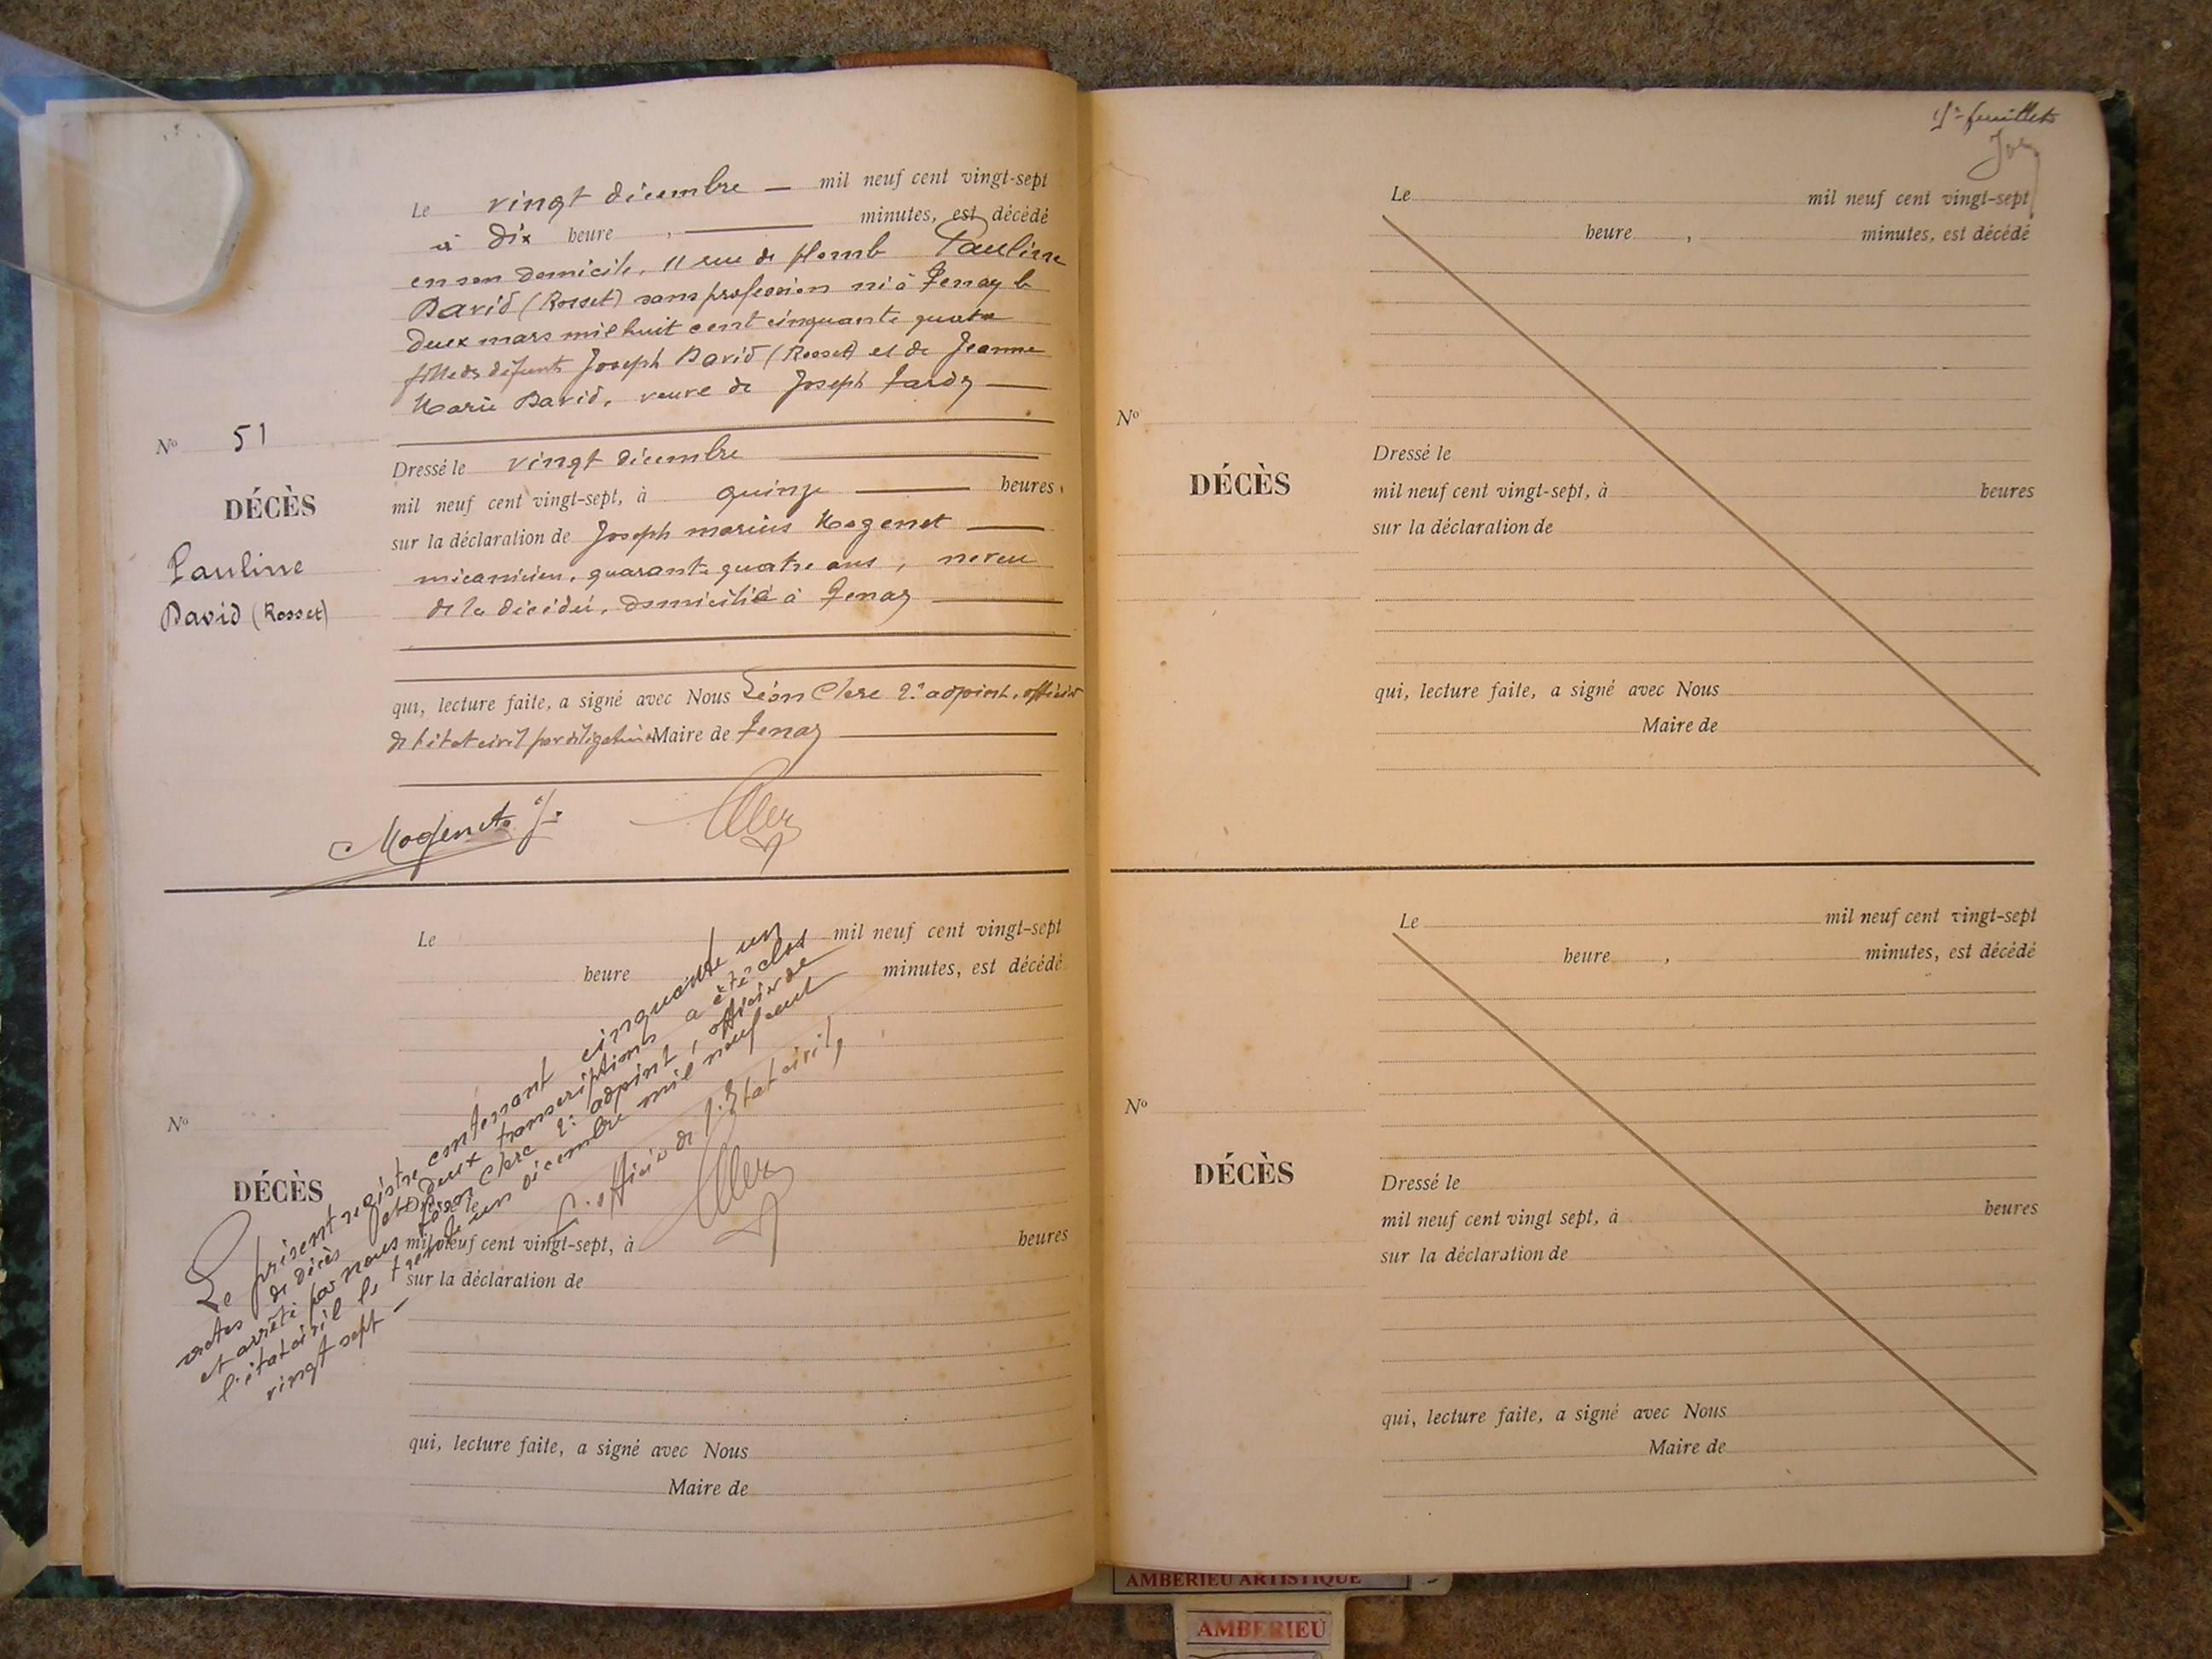 Le vingt décembre — mil neuf cent vingt-sept
à dix heure , — minutes, est décédé
en son domicile, 11 rue du plomb Pauline
David (Rosset) sans profession née à Tenay le
deux mars mil huit cent cinquante quatre
fille des défunts Joseph David (Rosset) et de Jeanne
Marie David, veuve de Joseph Tardy —
No 51
DÉCÈS
Pauline
David (Rosset)
Dressé le vingt décembre —
mil neuf cent vingt-sept, à quinze — heures,
sur la déclaration de Joseph marius Mogenet —
mécanicien, quarante quatre ans, neveu
de la décédée, domicilié à Tenay —
qui, lecture faite, a signé avec Nous Léon Clerc 2e adjoint, officier
de l'état civil par délégation Maire de Tenay —
Mogenet J.
Le mil neuf cent vingt-sept
heure minutes, est décédé
No
DÉCÈS
Le présent registre contenant cinquante un
actes de décès et deux transcriptions a été clos
et arrêté par nous Léon Clerc 2e adjoint, officier de
l'état civil le trente un décembre mil neuf cent
vingt sept —
L'officier de l'Etat civil,
Dressé le
mil neuf cent vingt-sept, à heures
sur la déclaration de
qui, lecture faite, a signé avec Nous
Maire de
feuillets
Le mil neuf cent vingt-sept
heure , minutes, est décédé
No
DÉCÈS
Dressé le
mil neuf cent vingt-sept, à heures
sur la déclaration de
qui, lecture faite, a signé avec Nous
Maire de
Le mil neuf cent vingt-sept
heure , minutes, est décédé
No
DÉCÈS
Dressé le
mil neuf cent vingt sept, à heures
sur la déclaration de
qui, lecture faite, a signé avec Nous
Maire de
AMBERIEU ARTISTIQUE
AMBERIEU